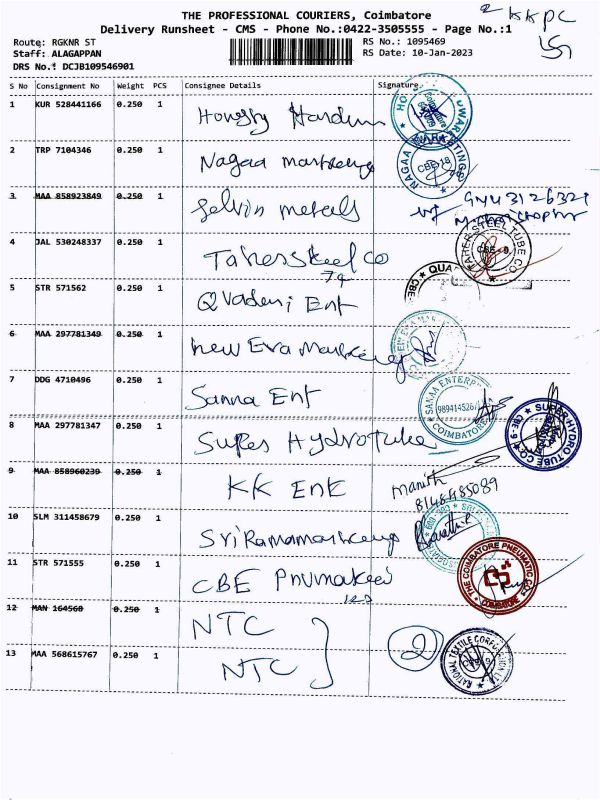 THE PROFESSIONAL COURIERS, Coimbatore
KKPC
Delivery Runsheet - CMS - Phone No.:0422-3505555 - Page No.:1
Route: RGKNR ST
RS No.: 1095469
Staff: ALAGAPPAN
RS Date: 10-Jan-2023
DRS No.: DCJB109546901
S No Consignment No Weight PCS Consignee Details Signature
1 KUR 528441166 0.250 1 Hongsy Hardum
2 TRP 7104346 0.250 1 Nagaa marketing NAGAA MARKETINGS CBE-18
3 MAA 858923849 0.250 1 Selvin metals
4 JAL 530248337 0.250 1 Taher Steel Co TAHER STEEL TUBE CO CBE-9
5 STR 571562 0.250 1 Qvadeni Ent CBE QUA
6 MAA 297781349 0.250 1 New Era Marketing
7 DDG 4710496 0.250 1 Sanna Ent SANAA ENTERP COIMBATORE
8 MAA 297781347 0.250 1 Super Hydrotube SUPER HYDRO TUBE CO CBE-9
9 MAA 858960239 0.250 1 KK Ent Manish
8148485089
10 SLM 311458679 0.250 1 Sri Rama marketing
11 STR 571555 0.250 1 CBE Pnumatic THE COIMBATORE PNEUMATIC CO COIMBATORE
12 MAN 164560 0.250 1 NTC
13 MAA 568615767 0.250 1 NTC 2 NATIONAL TEXTILE CORPORATION LTD CBE-9